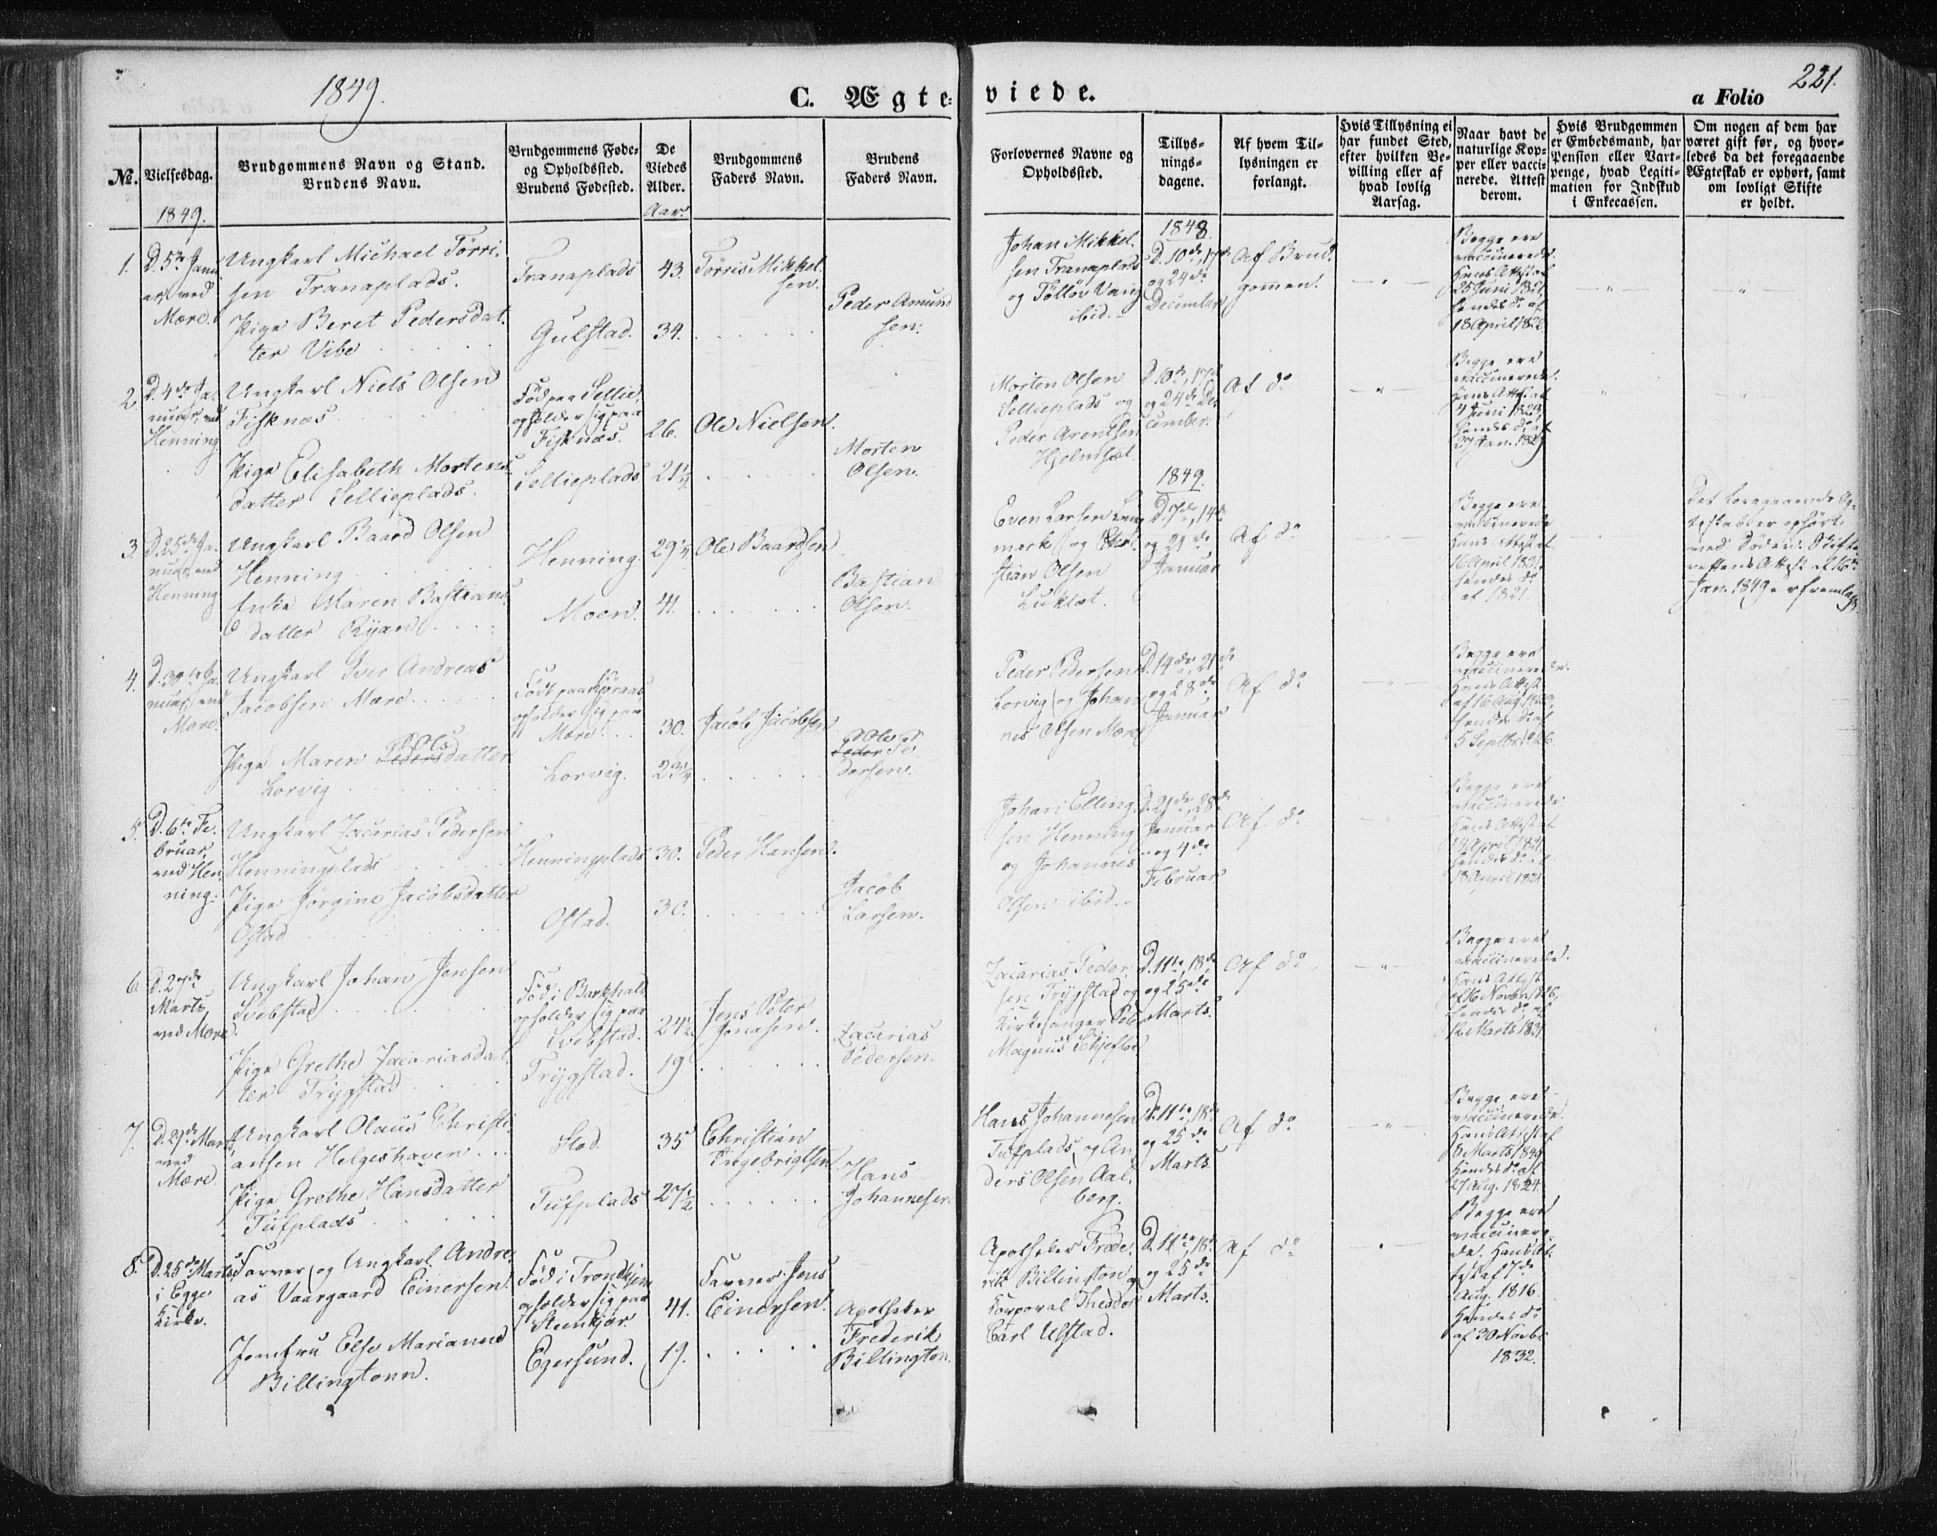 1849.
C. Ægte-
viede.
221.
a Folio
No.
Vielsesdag.
Brudgommens Navn og Stand.
Brudens Navn.
Brudgommens Føde-
og Opholdssted.
Brudens Fødested.
De
Viedes
Alder.
Brudgommens
Faders Navn.
Brudens
Faders Navn.
Forlovernes Navne og
Opholdssted.
Tillys-
nings-
dagene.
Af hvem Til-
lysningen er
forlangt.
Hvis Tillysning ei
har fundet Sted,
efter hvilken Be-
villing eller af
hvad lovlig
Aarsag.
Naar havt de
naturlige Kop-
per eller vacci-
nerede. Attest
derom.
Hvis Brudgommen
er Embedsmand, har
Pension eller Vart-
penge, hvad Legiti-
mation for Indskud
i Enkecassen.
Om nogen af dem har
været gift før, og hvor-
ledes da det foregaaende
Ægteskab er ophørt, samt
om lovligt Skifte
er holdt.
1849.
Aar.
1848.
1.
D. 5te Janu
ar, ved
Mære.
Ungkarl Michael Tørri-
sen Tranaplads.
Pige Beret Pedersdat-
ter Vibe
Tranaplads
Gulstad.
43.
34.
Tørris Mikkel-
sen.
Peder Amund
sen.
Johan Mikkel-
sen Tranaplads
og Tølløv Vang
ibid.
D. 10de, 17de
og 24de
December
Af Brud-
gommen.
Begge ere
vaccinerede.
Hans Attest af
25 Juni 1821
hendes do af
18 April 1822
2.
D. 4de Ja-
nuar, ved
Henning
Ungkarl Niels Olsen
Fisknæs
Pige Elisabeth Mortens-
datter Sellieplads.
Fød paa Sellie,
opholder sig paa
Fisknæs.
Sellieplads
26.
21½
Ole Nielsen.
Morten
Olsen.
Morten Olsen
Sellieplads og
Peder Arentsen
Hjelmsæt
D. 10de, 17de
og 24de De-
cember.
Af do
Begge ere
vaccinerede.
Hans Attest af
4 Juni 1829,
hendes do af
27 Jan. 1829
1849.
3.
D. 25de Ja-
nuar, ved
Henning
Ungkarl Baard Olsen
Henning
Enke Maren Bastians-
datter Ryan
Henning.
Moen.
29½
41.
Ole Baardsen
Bastian
Olsen.
Even Larsen Lang
mark og
stian Olsen
D. 7de, 14de
og 21de
Januar
Af do
Begge ere
vaccinerede
Hans Attest af
16 April 1821
hendes do
af 1821.
Det foregaaende Æg-
teskab er ophørt
ved Døden. Skifte-
rettens Attest af 16de
Jan. 1849 er fremlagt
4.
D. 30te Ja-
nuar, ved
Mære.
Ungkarl Iver Andreas
Jacobsen Mære
Pige Maren Ols
Peders datter
Lorvig
Født paa
opholder sig paa
Mære.
Lorvig.
30.
23½
Jacob Jacobsen
Ole
Peder Pe-
dersen.
Peder Pedersen
Lorvig og Johan-
nes Olsen Mære
D. 14de, 21de
og 28de
Januar
Af do
Begge ere
vaccinerede.
Hans Attest
af 16 Aug. 1820,
hendes do af
5 Septbr. 1826
5.
D. 6te Fe-
bruar,
ved Hen-
ning.
Ungkarl Zacarias Pedersen
Henningplads
Pige Jørgine Jacobsdatter
Østad
Henningplads
Østad.
30.
30.
Peder Hansen.
Jacob
Larsen.
Johan Elling-
sen Henning
og Johannes
Olsen ibid.
D. 21de, 28de
Januar
og 4de
Februar
Af do
Begge ere
vaccinerede.
Hans Attest af
14 April 1821
hendes do af
18 April 1821
6.
D. 27de
Marts,
ved Mære.
Ungkarl Johan Jensen
Svebstad
Pige Grethe Zacariasdat-
ter Trygstad
Fød i Barkhald
opholder sig paa
Svebstad.
Trygstad.
24½
19
Jens Peter
Jonasen.
Zacarias
Pedersen.
Zacarias Peder-
sen Trygstad og
Kirkesanger Peter
Magnus Schjeflo
D. 11te, 18de
og 25de
Marts.
Af do
Begge ere
vaccinerede.
Hans Attest
af 16 Novbr. 1826,
hendes do af
12 Marts 1831
7.
D. 29de Marts,
ved
Mære.
Ungkarl Olaus Christi-
ansen Helgeshaven
Pige Grethe Hansdatter
Tufplads
Stod
Tufplads
35
27½
Christian
Ingebrigtsen
Hans
Johannesen
Hans Johannesen
Tufplads, og An-
ders Olsen Aal-
berg.
D. 11te, 18de
og 25de
Marts.
Af do
Begge ere
vaccinerede.
Hans Attest af
Marts 1849
Hendes do af
27 Aug. 1824.
8.
D. 25de Marts
i Egge
Kirke.
Farver og Ungkarl Andre-
as Vaargaard Einersen.
Jomfru Else Marianne
Billingtonn.
Fød i Trondhjem
opholder sig paa
Steenkjær
Egersund.
41.
19.
Farver Jens
Einersen.
Apotheker
Frederik
Billington.
Apotheker Frede-
rik Billington og
Korporal Theodor
Carl Ulstad.
D. 11te, 18de
og 25de
Marts.
Af do
Begge ere
vaccinere-
de. Hans At-
test af 7de
Aug. 1816.
Hendes do
af 30 Novbr.
1832.